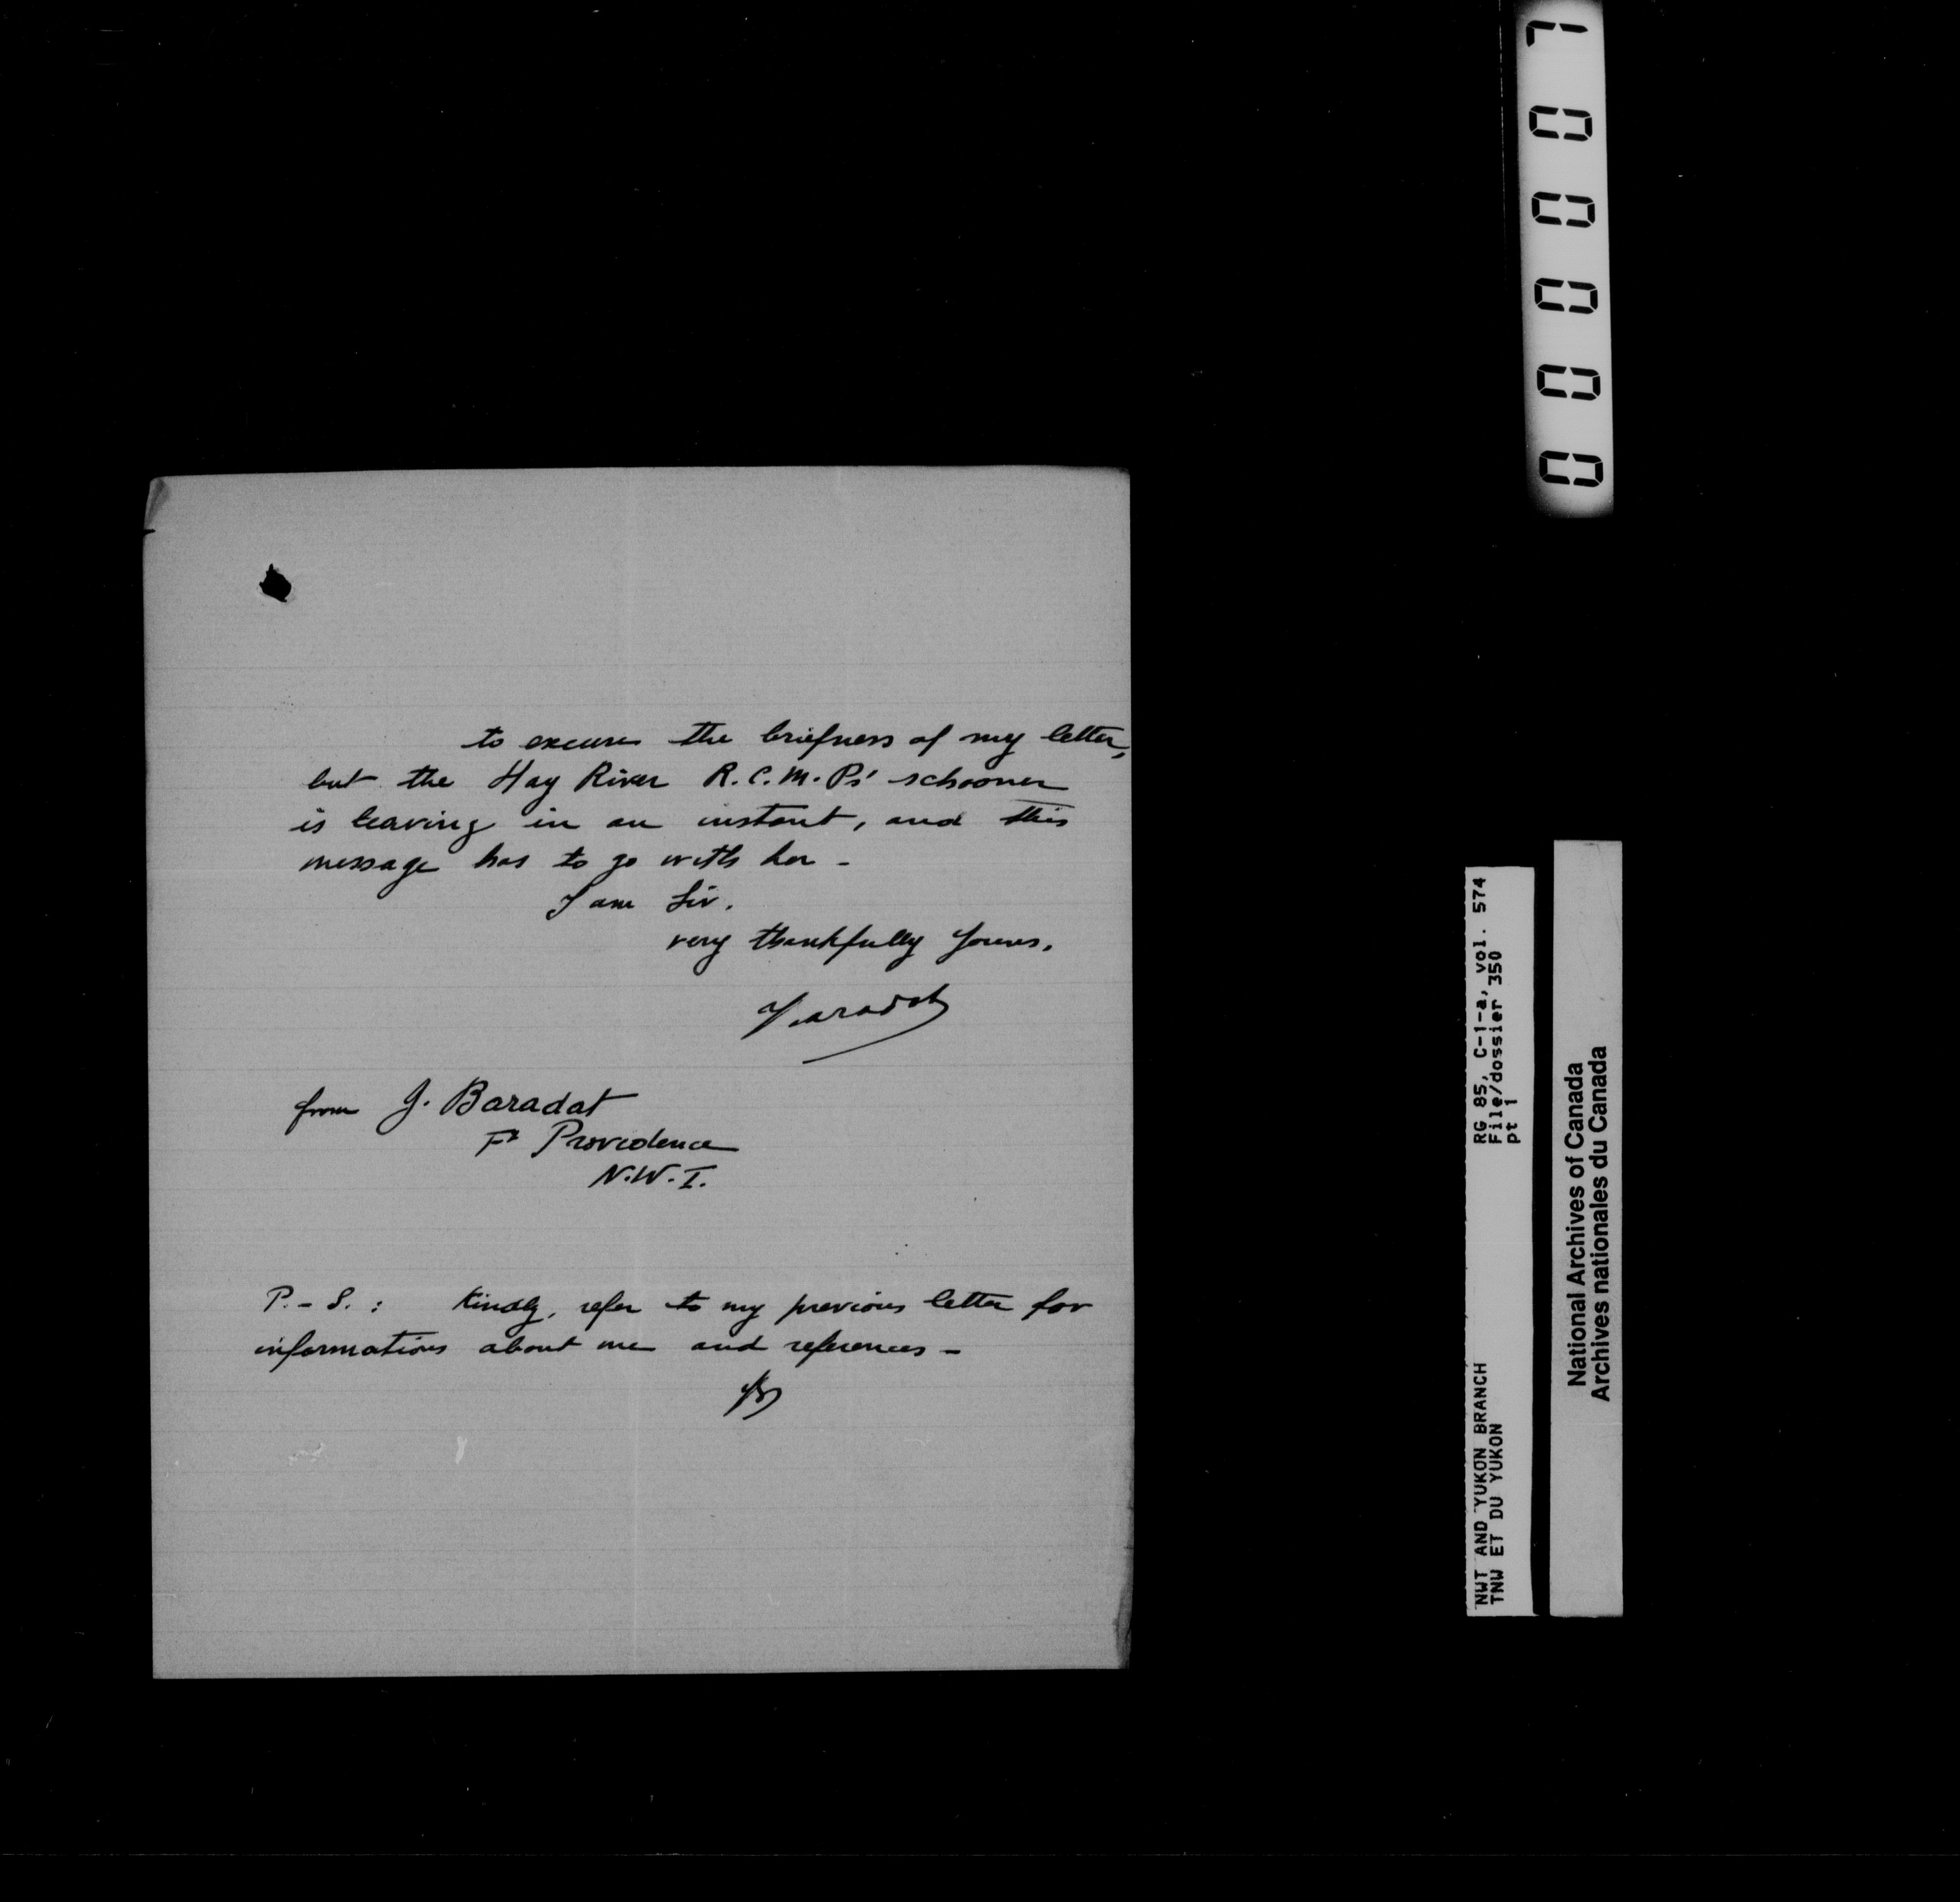 to excuse the briefness of my letter,
but the Hay River R.C.M.Ps' schooner
is leaving in an instant, and this
message has to go with her -
I am Sir,
very thankfully yours,
JBaradat
from J. Baradat
Ft Providence
N.W.T.
P.-S. : Kindly, refer to my previous letter for
informations about me and references -
JB
000007
RG 85, C-1-a, vol. 574
File/dossier 350
pt 1
NWT AND YUKON BRANCH
TNW ET DU YUKON
National Archives of Canada
Archives nationales du Canada